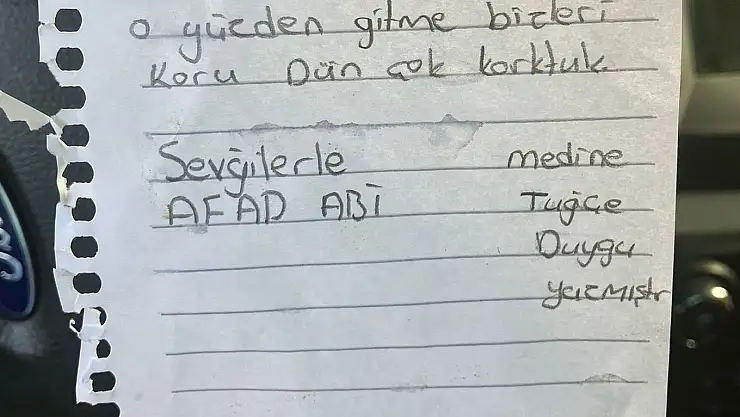 o yüzden gitme bizleri
Koru Dün çok korktuk.
Sevğilerle medine
AFAD ABİ Tuğçe
Duygu
yazmıştır